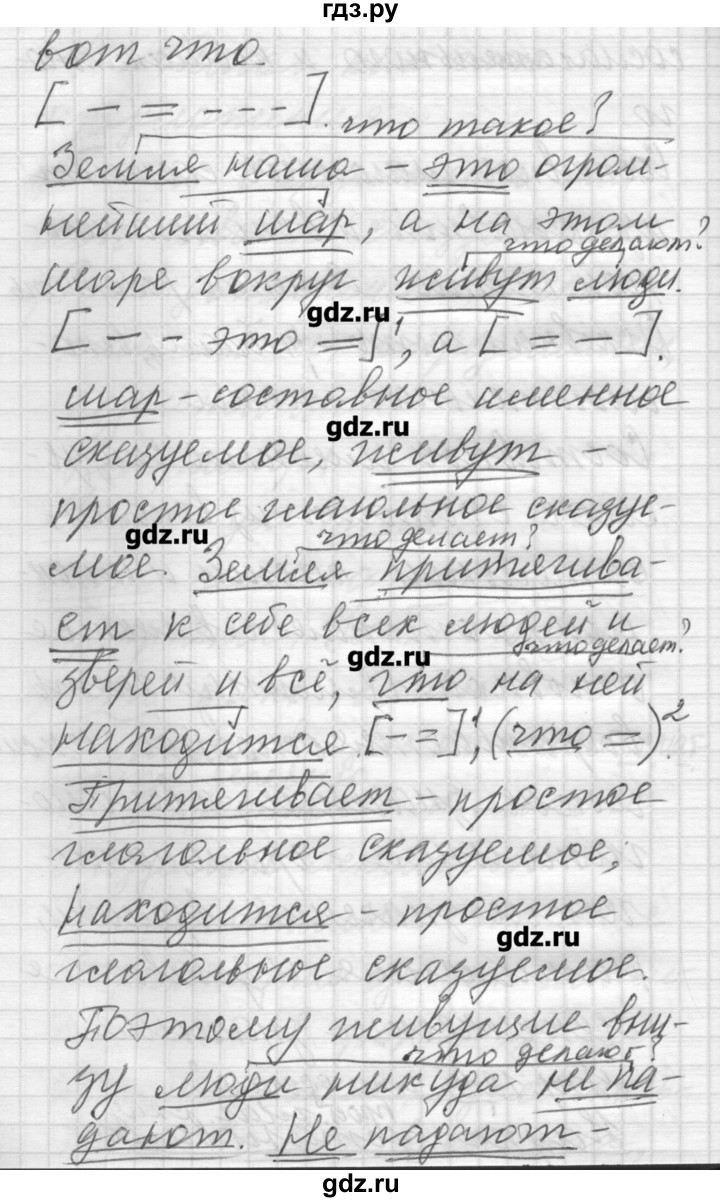 гдз.ру
вот что.
[ — = - - - ].
что такое?
Земля наша – это огром-
нейший шар, а на этом
что делают?
шаре вокруг живут люди.
gdz.ru
[ — – это = ]¹, а [ = — ].
шар – составное именное
gdz.ru
сказуемое, живут –
простое глагольное сказуе-
gdz.ru
что делает?
мое. Земля притягива-
ет к себе всех людей и
что делает?
gdz.ru
зверей и всё, что на ней
находится. [ — = ]¹, (что = )².
Притягивает – простое
глагольное сказуемое,
находится – простое
gdz.ru
глагольное сказуемое.
Поэтому живущие вни-
что делают?
зу люди никуда не па-
дают. Не падают –
gdz.ru